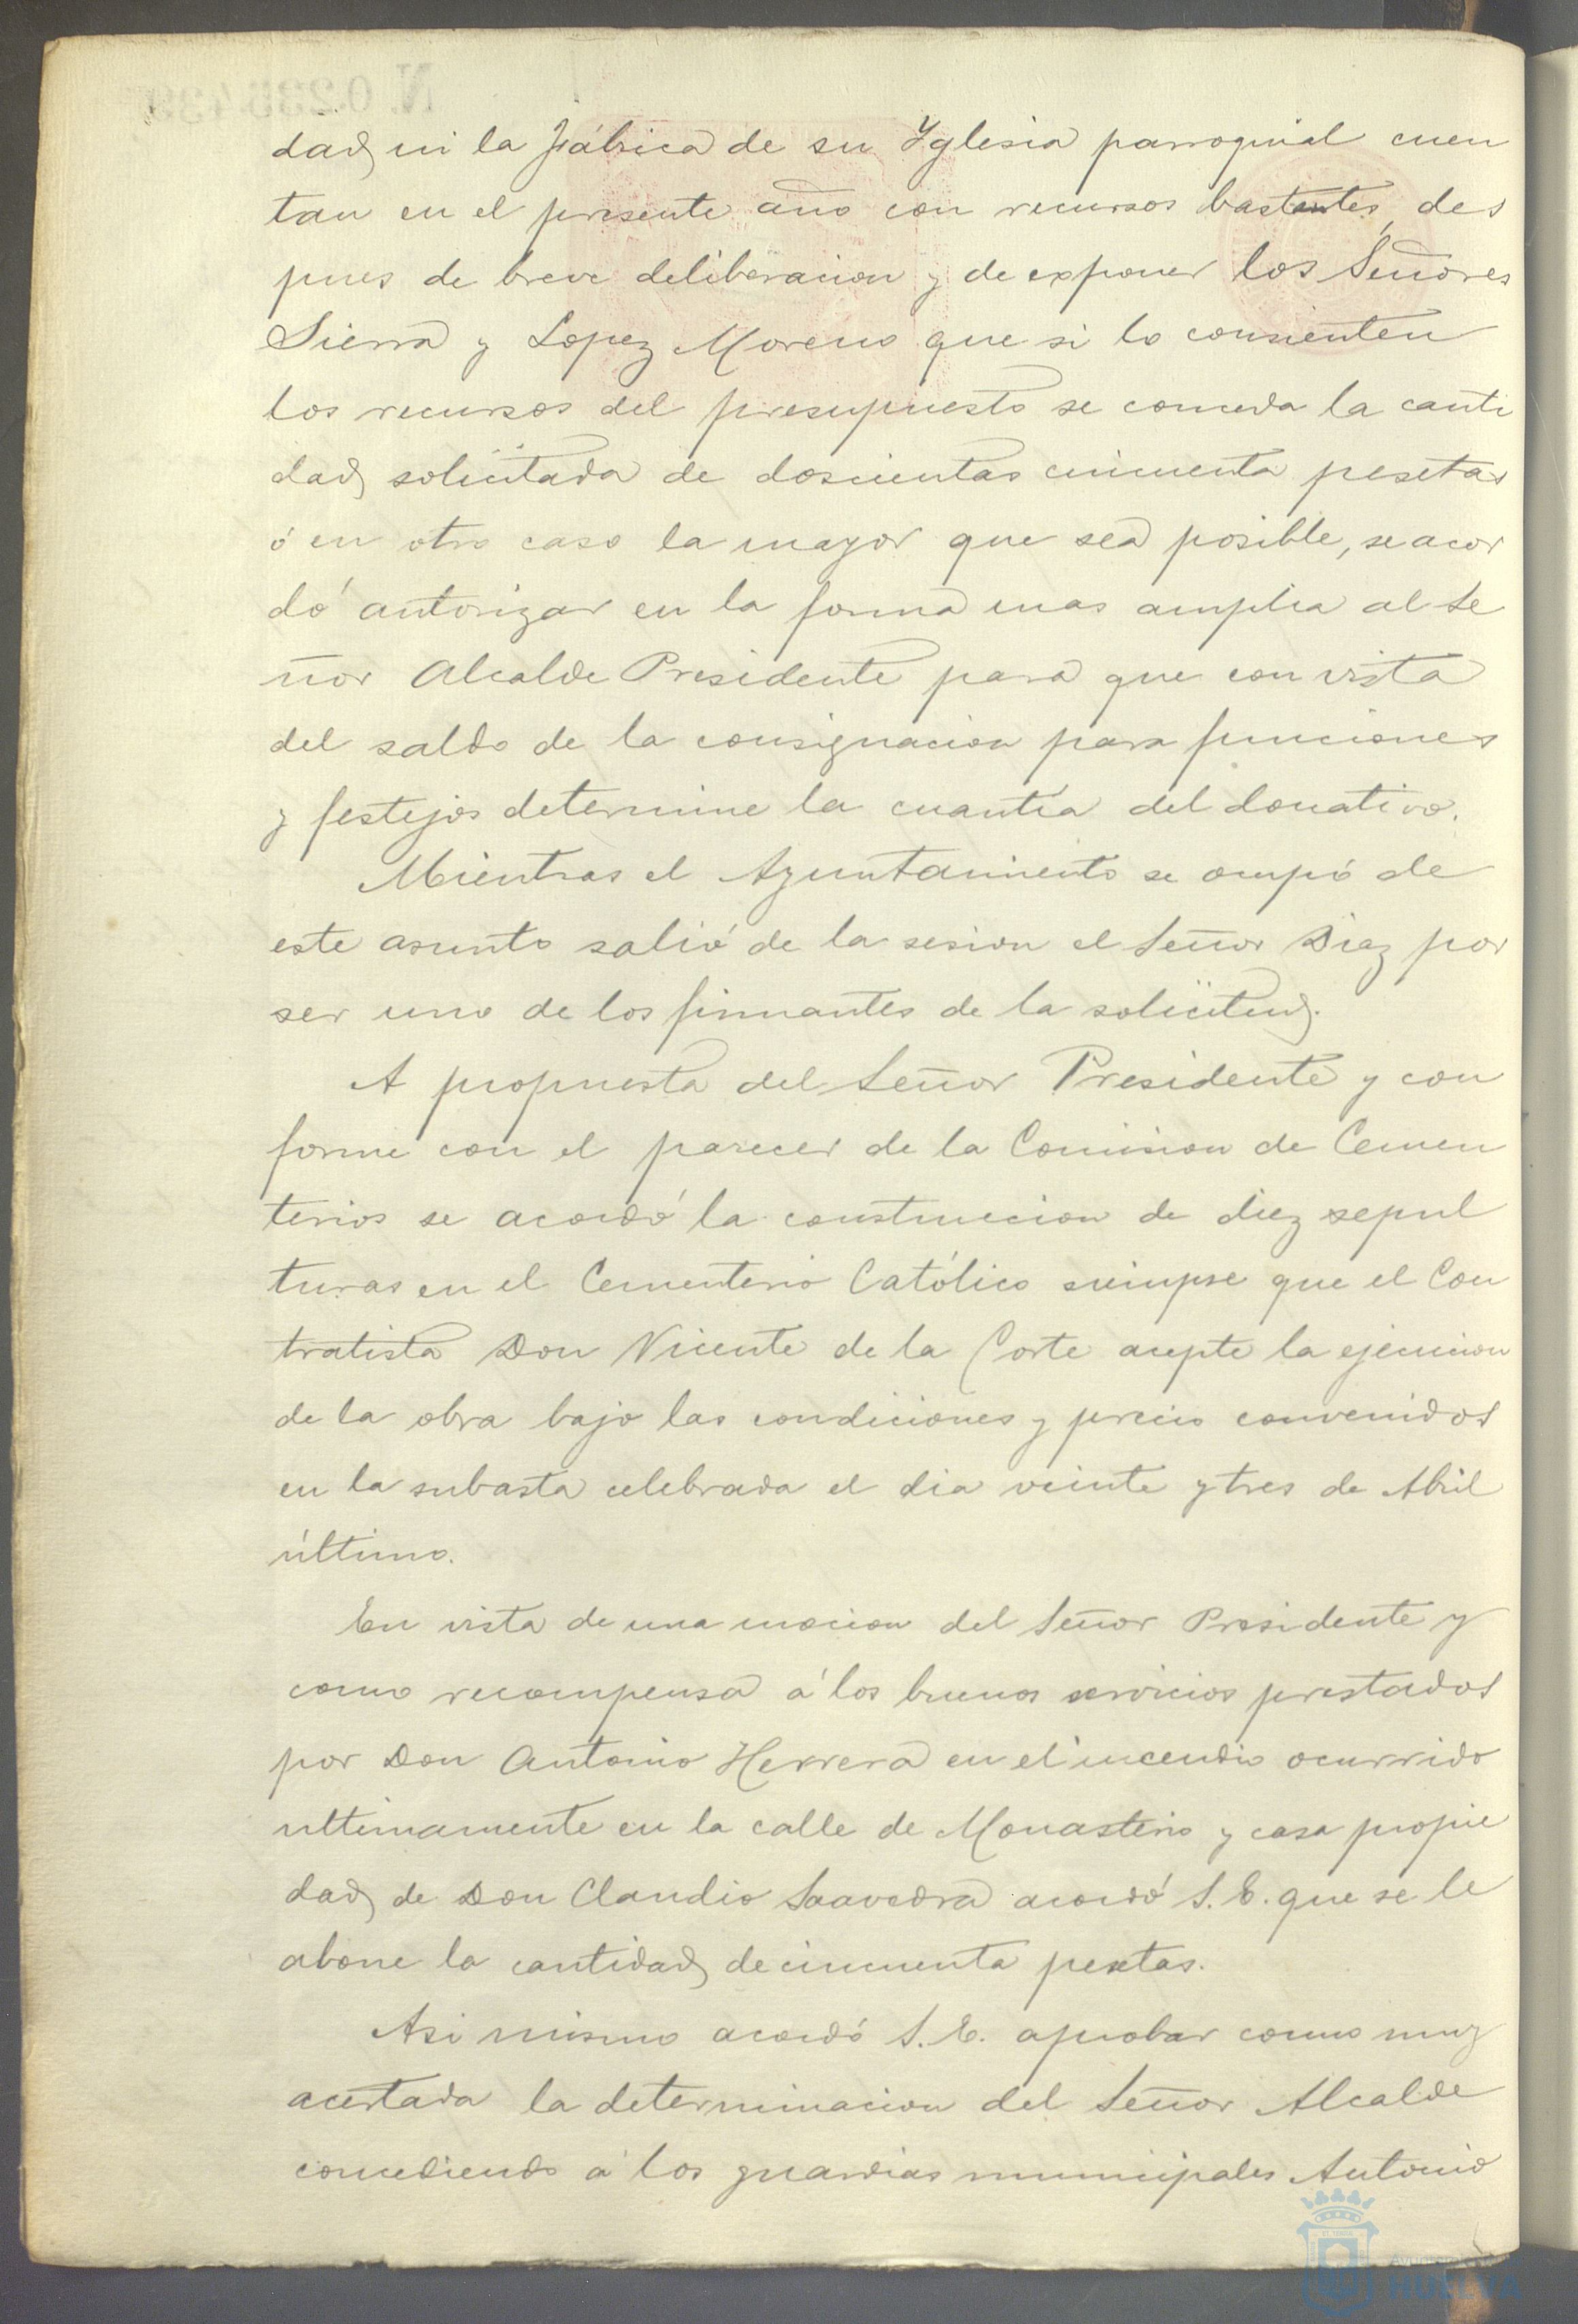 dad, ni la fábrica de su Yglesia parroquial cuen
tan en el presente año con recursos bastantes, des
pues de breve deliberacion y de exponer los Señores
Sierra y Lopez Moreno que si lo consienten
los recursos del presupuesto se conceda la canti
dad solicitada de doscientas cincuenta pesetas
ó en otro caso la mayor que sea posible, se acor
dó autorizar en la forma mas amplia al Se
ñor Alcalde Presidente para que con vista
del saldo de la consignacion para funciones
y festejos determine la cuantía del donativo.
Mientras el Ayuntamiento se ocupó de
este asunto salió de la sesion el Señor Diaz por
ser uno de los firmantes de la solicitud.
A propuesta del Señor Presidente y con
forme con el parecer de la Comision de Cemen
terios se acordó la construccion de diez sepul
turas en el Cementerio Católico siempre que el Con
tratista Don Vicente de la Corte acepte la ejecucion
de la obra bajo las condiciones y precio convenidos
en la subasta celebrada el dia veinte y tres de Abril
último.
En vista de una mocion del Señor Presidente y
como recompensa á los buenos servicios prestados
por Don Antonio Herrera en el incendio ocurrido
ultimamente en la calle de Monasterio y casa propie
dad de Don Claudio Saavedra acordó S. E. que se le
abone la cantidad de cincuenta pesetas.
Asi mismo acordó S. E. aprobar como muy
acertada la determinacion del Señor Alcalde
concediendo á los guardias municipales Antonio
HUELVA